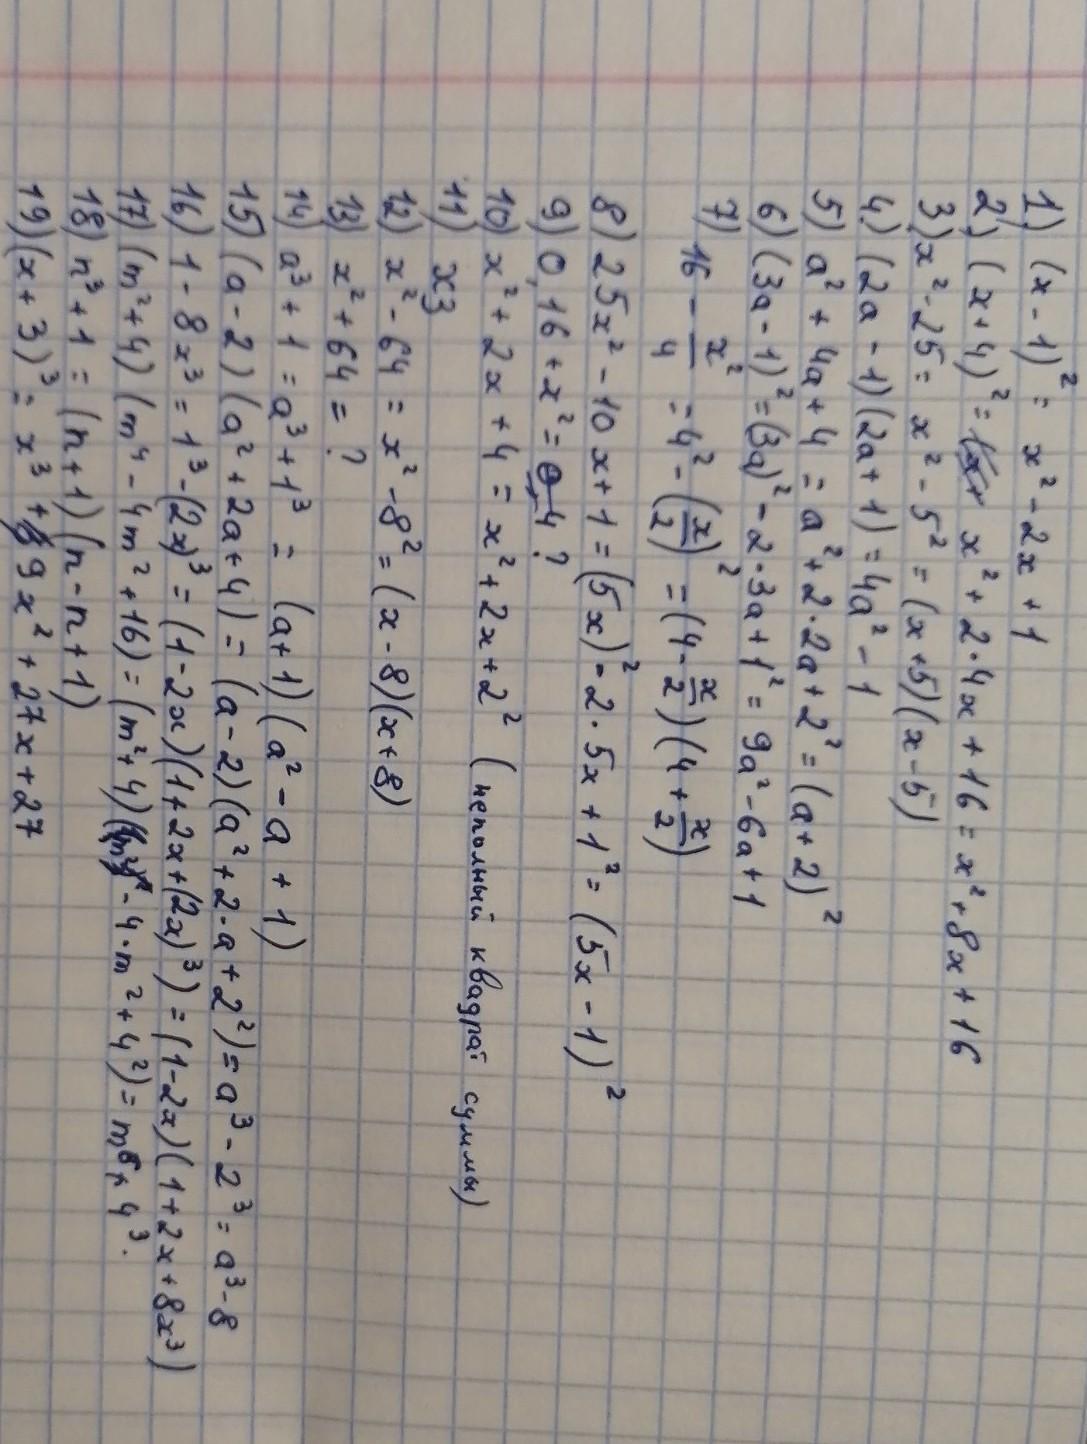 1) (x - 1)² = x² - 2x + 1
2) (x + 4)² = x² + 2·4x + 16 = x² + 8x + 16
3) x² - 25 = x² - 5² = (x + 5)(x - 5)
4) (2a - 1)(2a + 1) = 4a² - 1
5) a² + 4a + 4 = a² + 2·2a + 2² = (a + 2)²
6) (3a - 1)² = (3a)² - 2·3a + 1² = 9a² - 6a + 1
7) 16 - x²/4 = 4² - (x/2)² = (4 - x/2)(4 + x/2)
8) 25x² - 10x + 1 = (5x)² - 2·5x + 1² = (5x - 1)²
9) 0,16 + x² = 0,4?
10) x² + 2x + 4 = x² + 2x + 2² (неполный квадрат суммы)
11) хз
12) x² - 64 = x² - 8² = (x - 8)(x + 8)
13) x² + 64 = ?
14) a³ + 1 = a³ + 1³ = (a + 1)(a² - a + 1)
15) (a - 2)(a² + 2a + 4) = (a - 2)(a² + 2·a + 2²) = a³ - 2³ = a³ - 8
16) 1 - 8x³ = 1³ - (2x)³ = (1 - 2x)(1 + 2x + (2x)³) = (1 - 2x)(1 + 2x + 8x³)
17) (m² + 4)(m⁴ - 4m² + 16) = (m² + 4)( - 4·m² + 4²) = m⁶ + 4³.
18) n³ + 1 = (n + 1)(n - n + 1)
19) (x + 3)³ = x³ + 9x² + 27x + 27